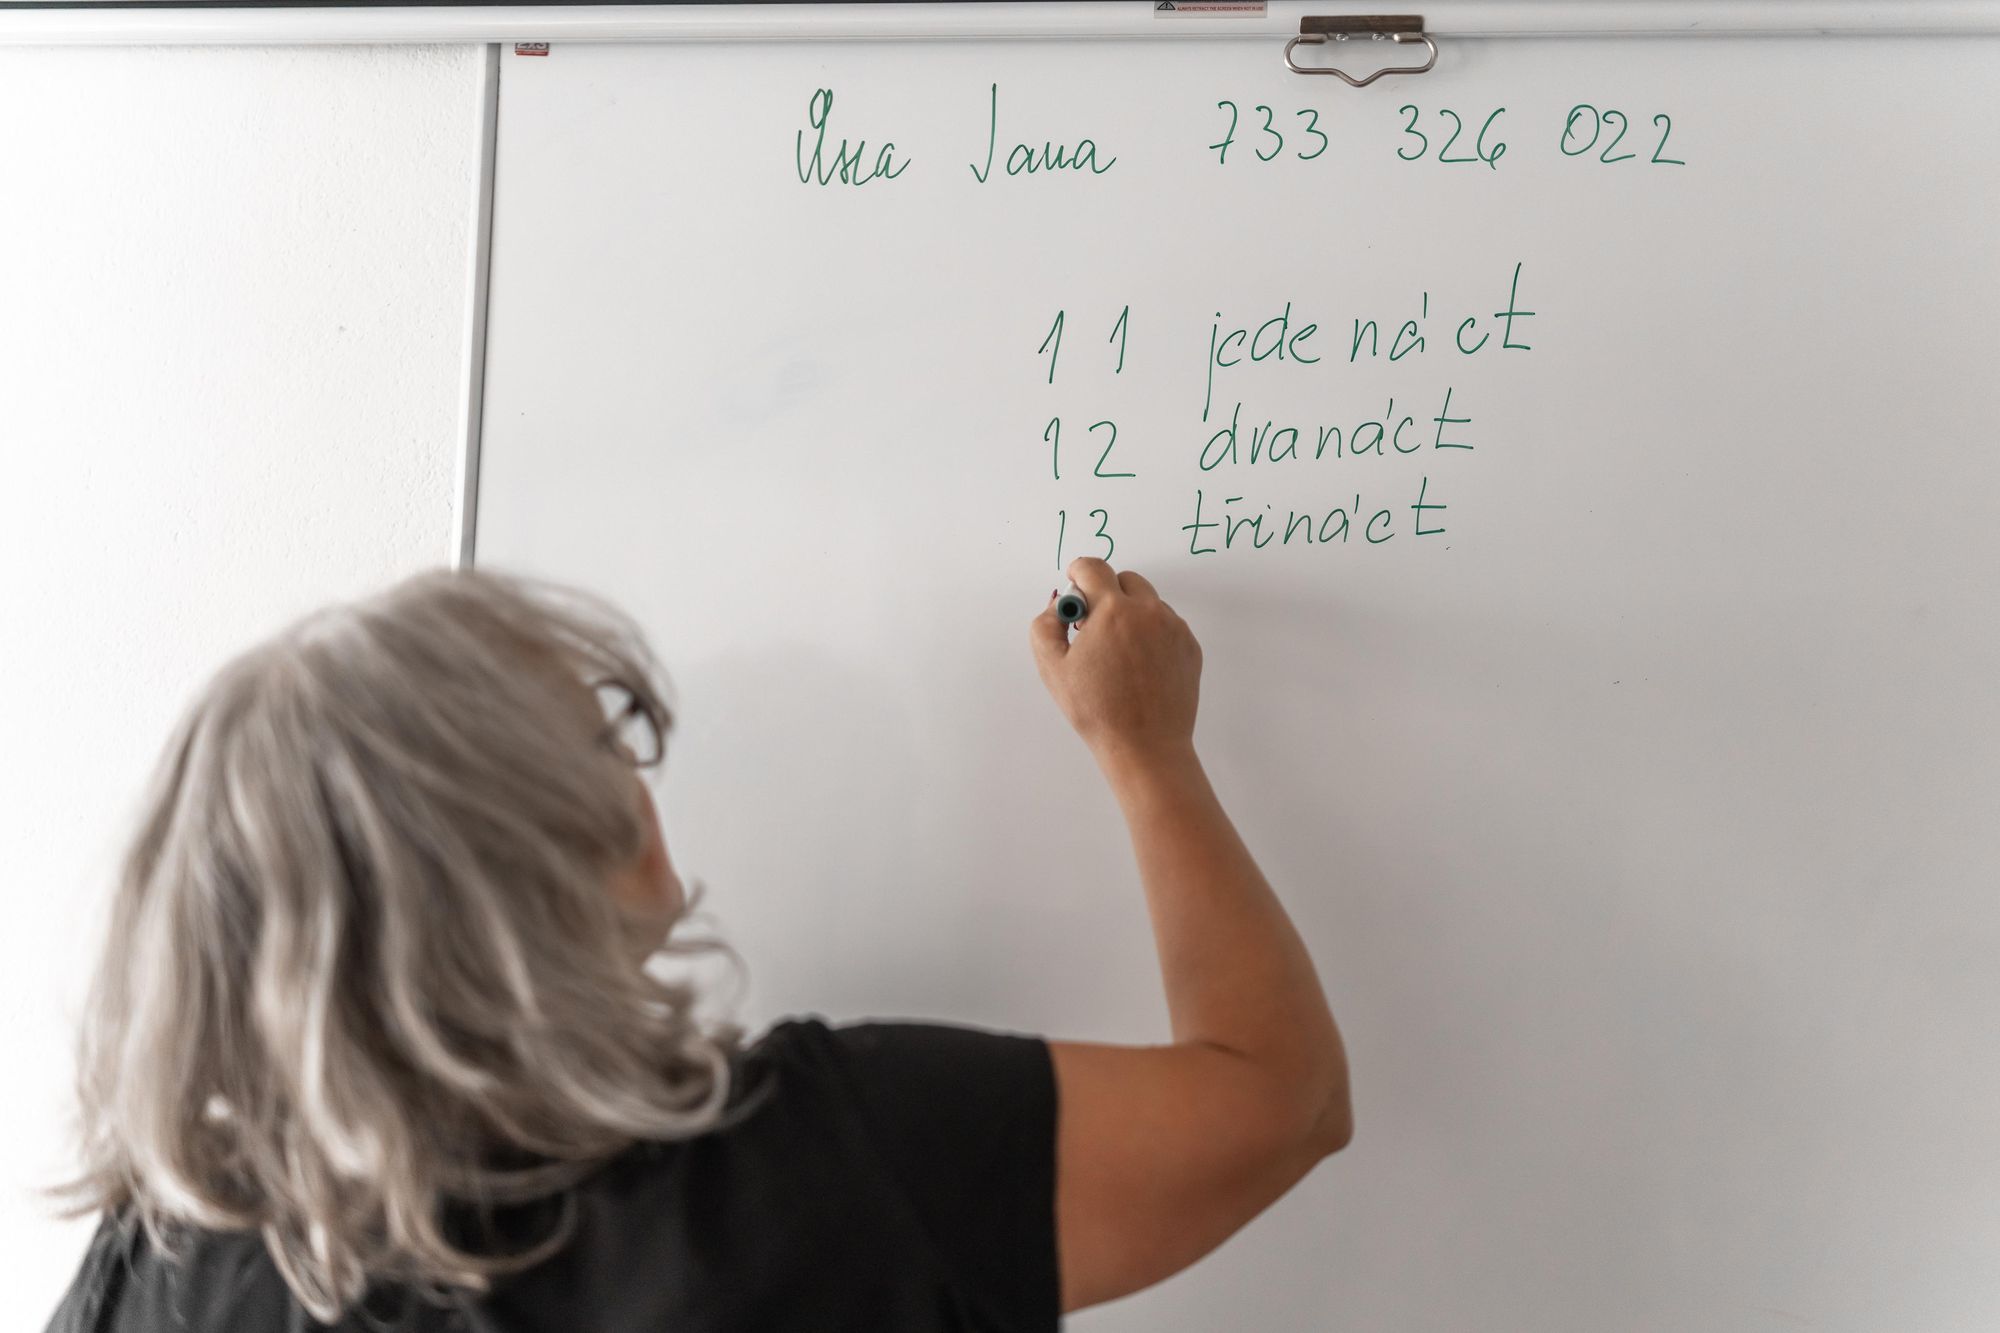 ALWAYS RETRACT THE SCREEN WHEN NOT IN USE
2x3
Jana 733 326 022
11 jedenáct
12 dvanáct
13 třináct